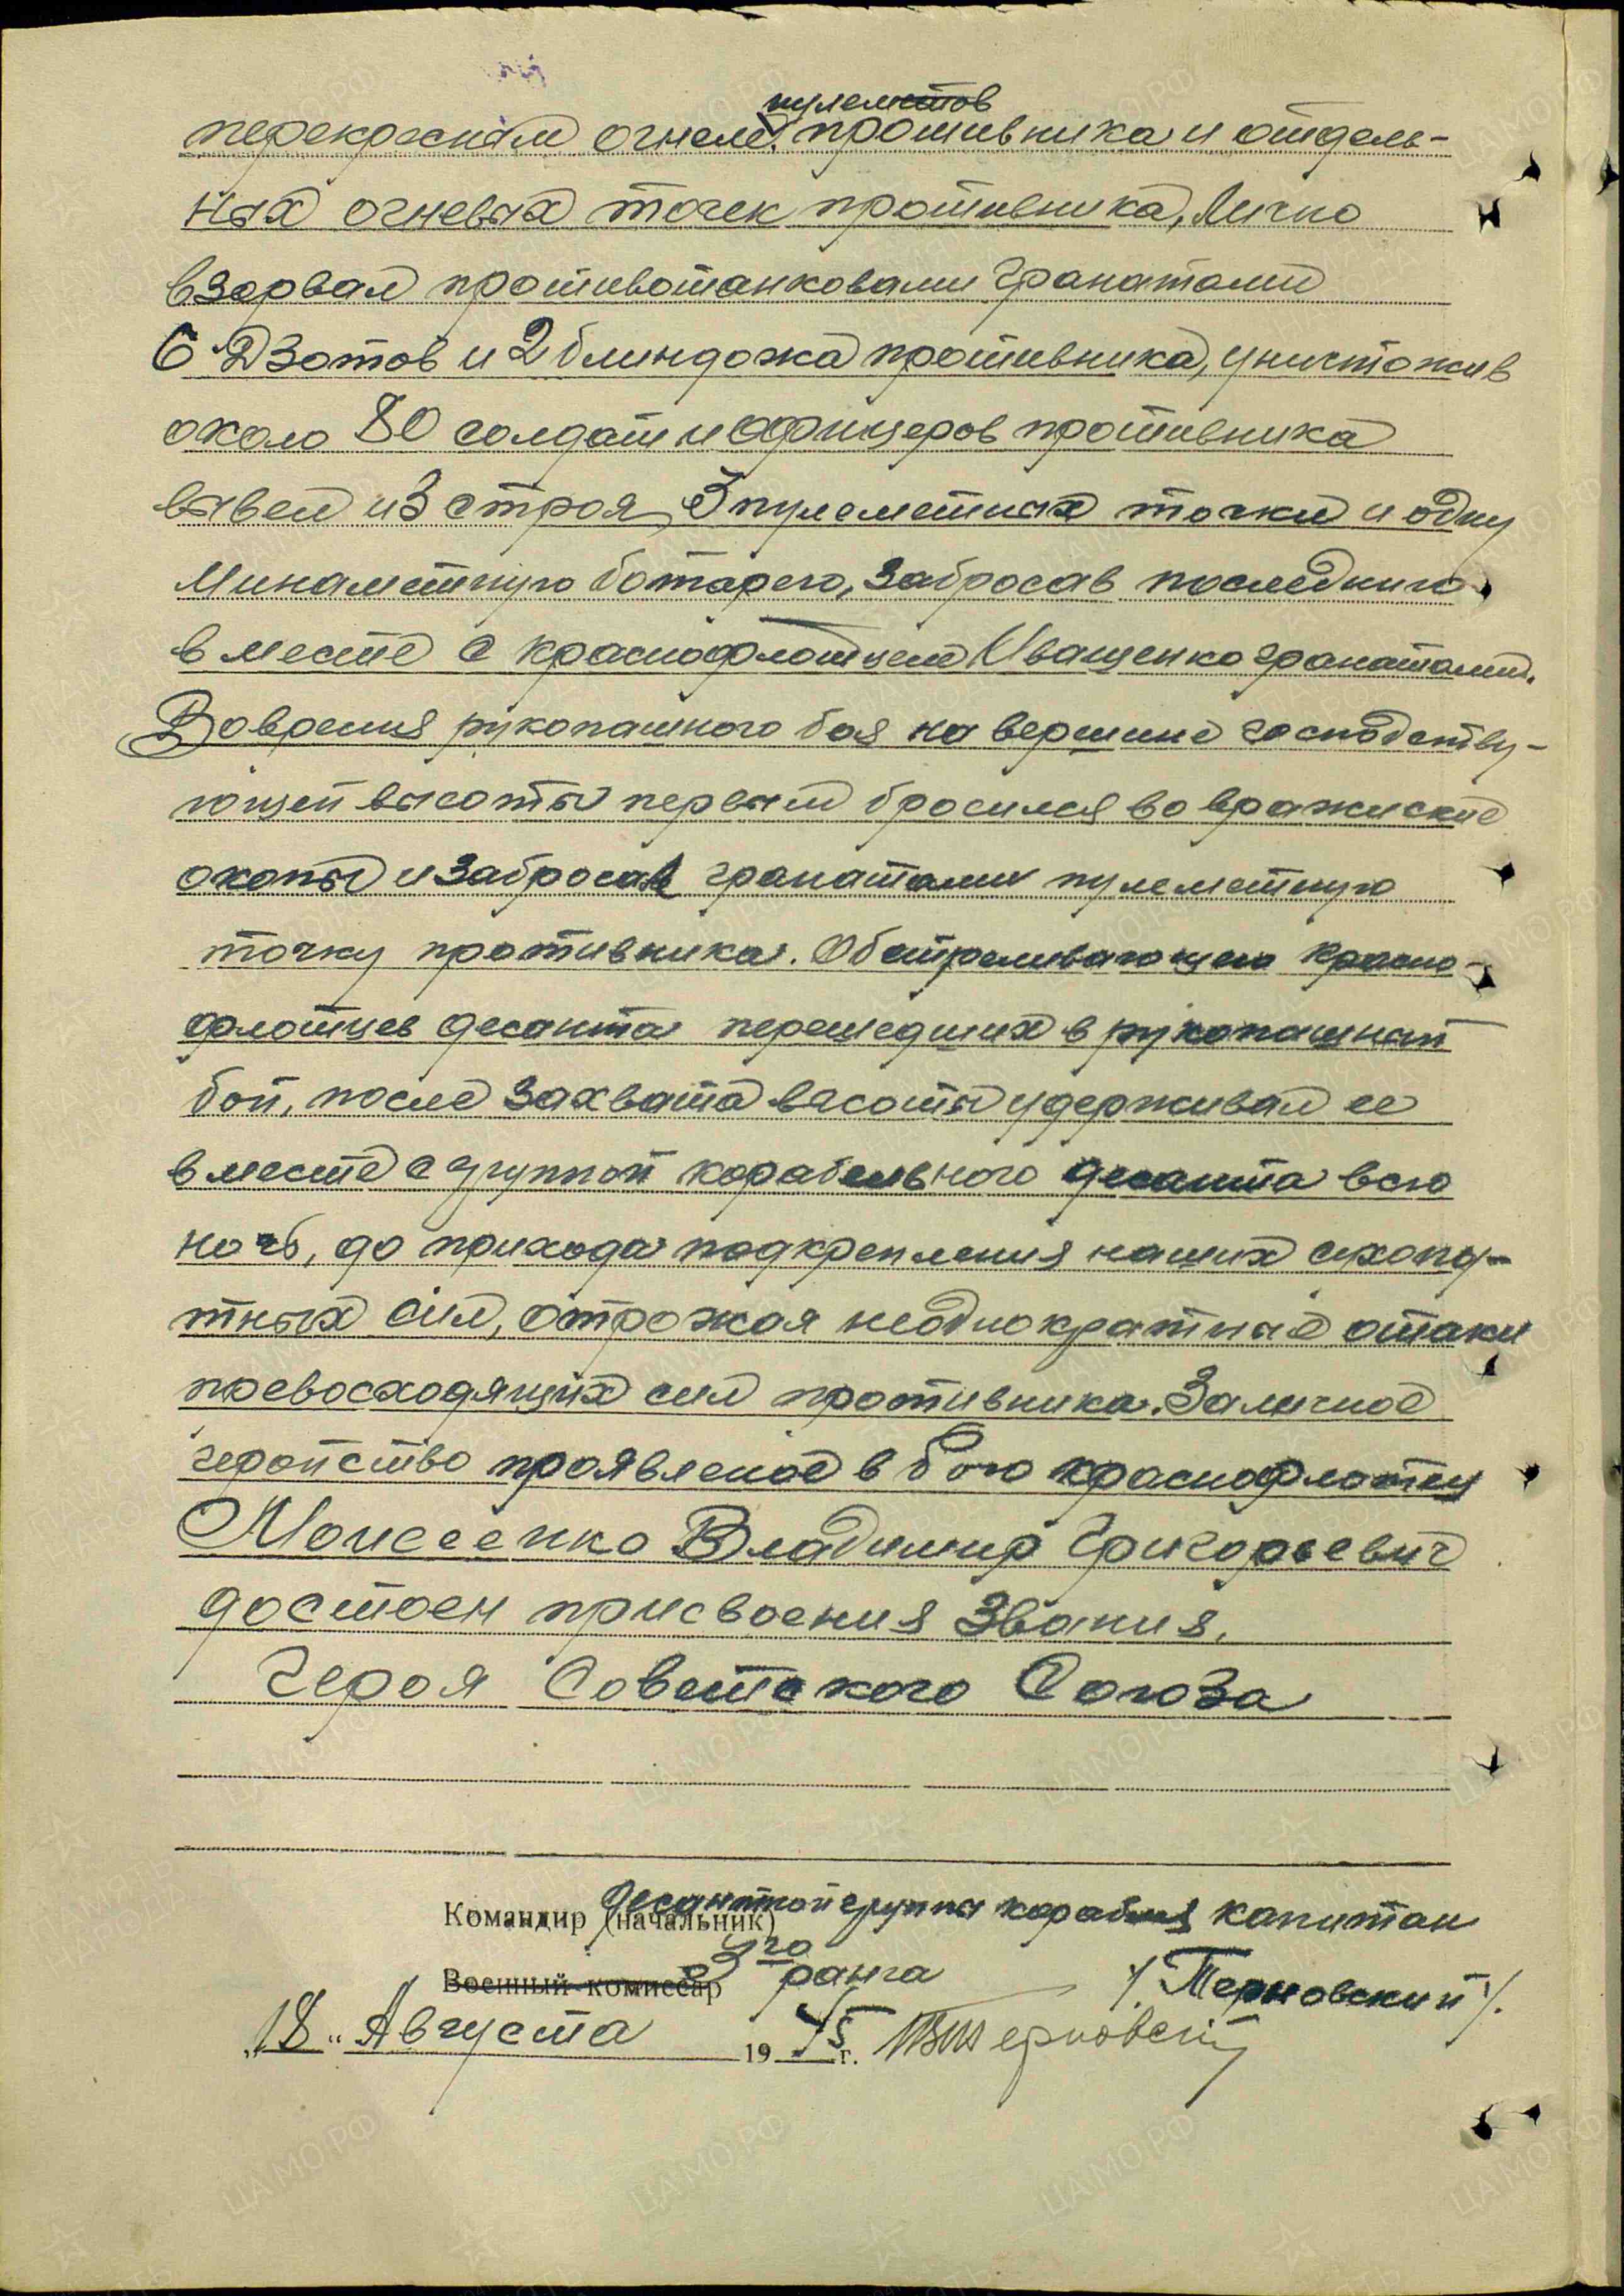 пулеметов
перекрестным огнем противника и отдель-
ных огневых точек противника, Лично
взорвал противотанковыми гранатами
6 ДЗотов и 2 блиндажа противника, уничтожив
около 80 солдат и офицеров противника
вывел из строя, 3 пулеметных точки и одну
Минаметную ботарею, забросав последнию
в месте с краснофлотцем Иващенко гранатами.
Во время рукопашного боя на вершине господству-
ющей высоты первым бросился во вражиские
окопы и забросав гранатами пулеметную
точку противника. Обстреливающею красно-
флотцев десанта перешедших в рукопашный
бой, после захвата высоты удерживал ее
в месте с группой корабельного десанта всю
ночь, до прихода подкрепления наших сухопу-
тных сил, отрожая неоднократные отаки
превосходящих сил противника. За личное
геройство проявленое в бою краснофлотец
Моисеенко Владимир Григорьевич
достоен присвоения звания,
Героя Советского Союза
Командир (начальник) десантной группы корабля капитан
Военный комиссар 3го ранга /Терновский/.
„18" Августа 1945 г. Терновский